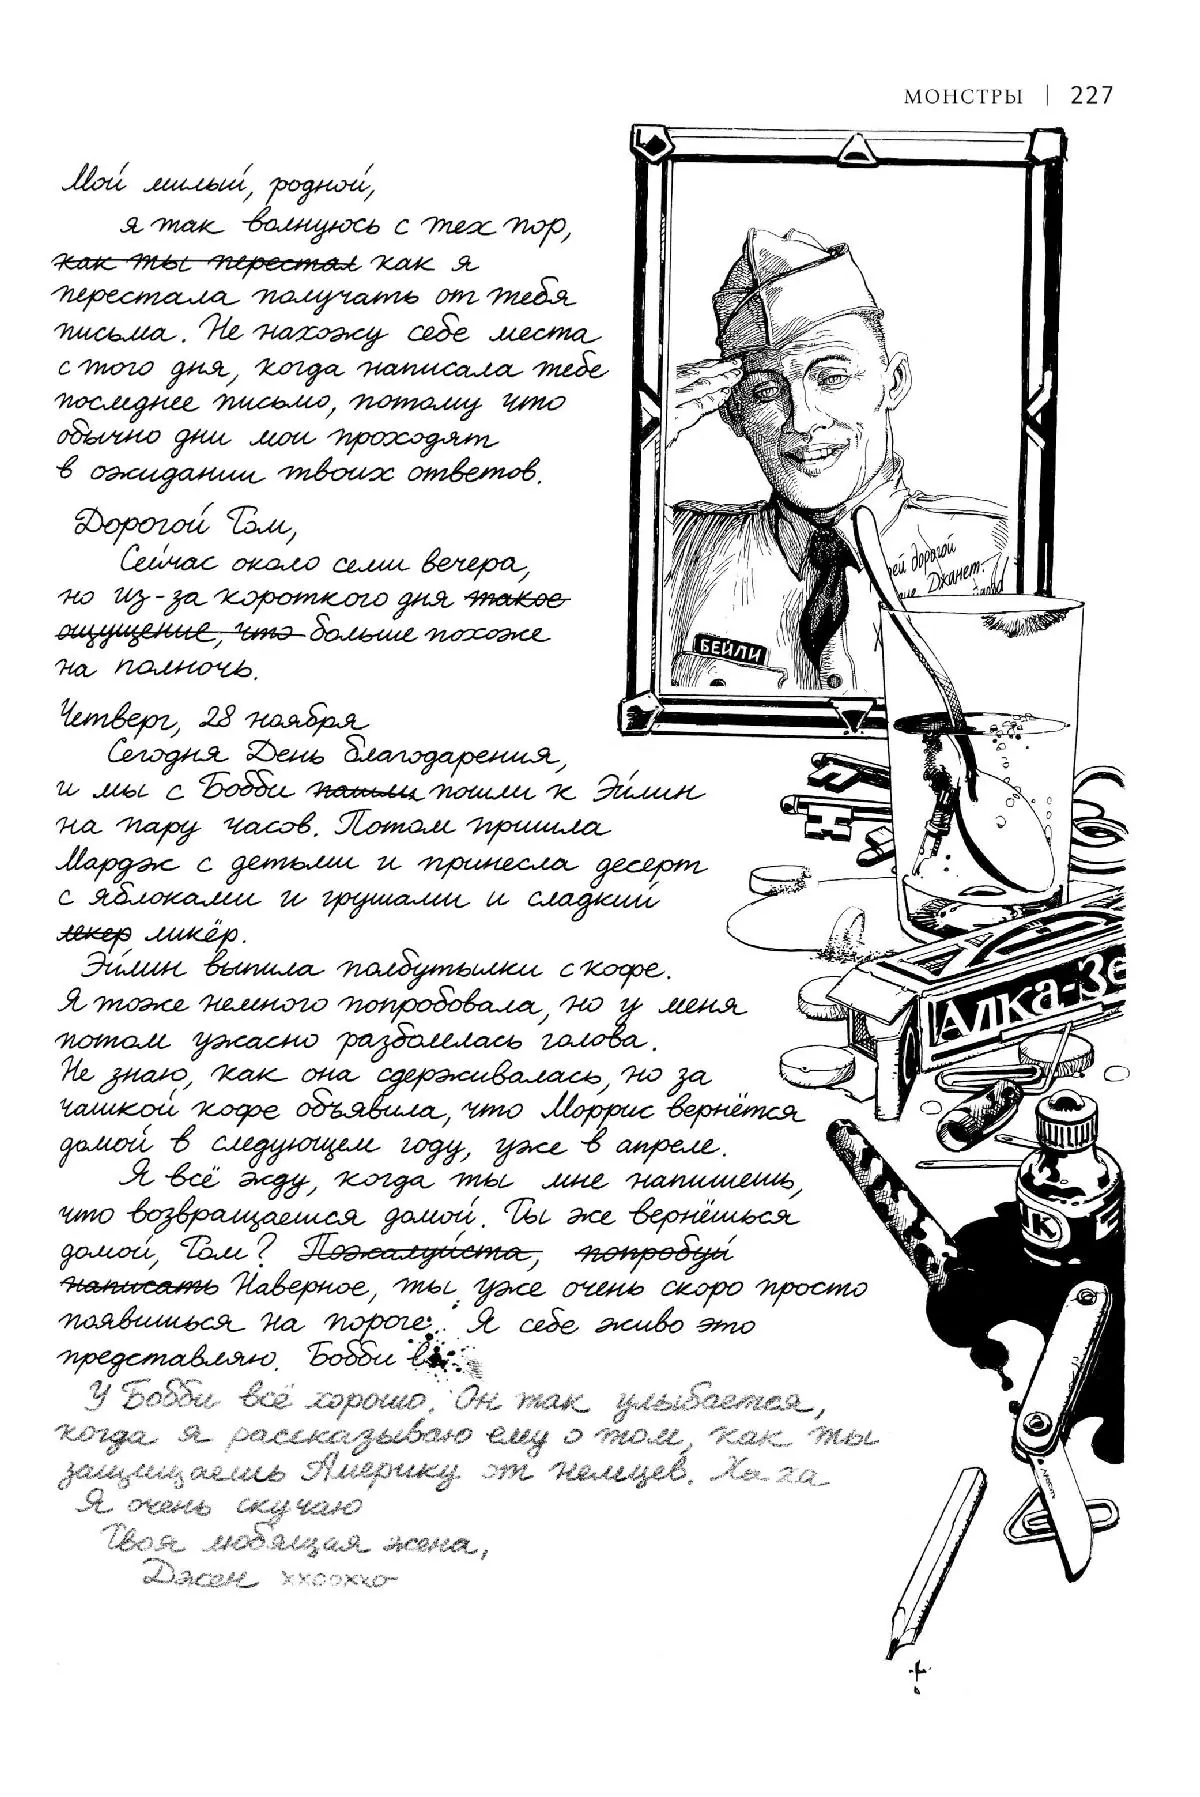 МОНСТРЫ | 227
Мой милый, родной,
я так волнуюсь с тех пор,
как ты перестал как я
перестала получать от тебя
письма. Не нахожу себе места
с того дня, когда написала тебе
последнее письмо, потому что
обычно дни мои проходят
в ожидании твоих ответов.
Дорогой Том,
Сейчас около семи вечера,
но из-за короткого дня такое
ощущение, что больше похоже
на полночь.
Четверг, 28 ноября
Сегодня День благодарения,
и мы с Бобби пошли к Эйлин
на пару часов. Потом пришла
Мардж с детьми и принесла десерт
с яблоками и грушами и сладкий
лекер ликёр.
Эйлин выпила полбутылки с кофе.
Я тоже немного попробовала, но у меня
потом ужасно разболелась голова.
Не знаю, как она сдерживалась, но за
чашкой кофе объявила, что Моррис вернётся
домой в следующем году, уже в апреле.
Я всё жду, когда ты мне напишешь,
что возвращаешся домой. Ты же вернёшься
домой, Том? Пожалуйста, попробуй
написать Наверное, ты уже очень скоро просто
появишься на пороге. Я себе живо это
представляю. Бобби
У Бобби всё хорошо. Он так улыбается,
когда я рассказываю ему о том, как ты
защищаешь Америку от немцев. Ха ха
Я очень скучаю
Твоя любящая жена,
Джен xxooxxo
ей дорогой
Джанет.
БЕЙЛИ
АЛКА-ЗЕ
К